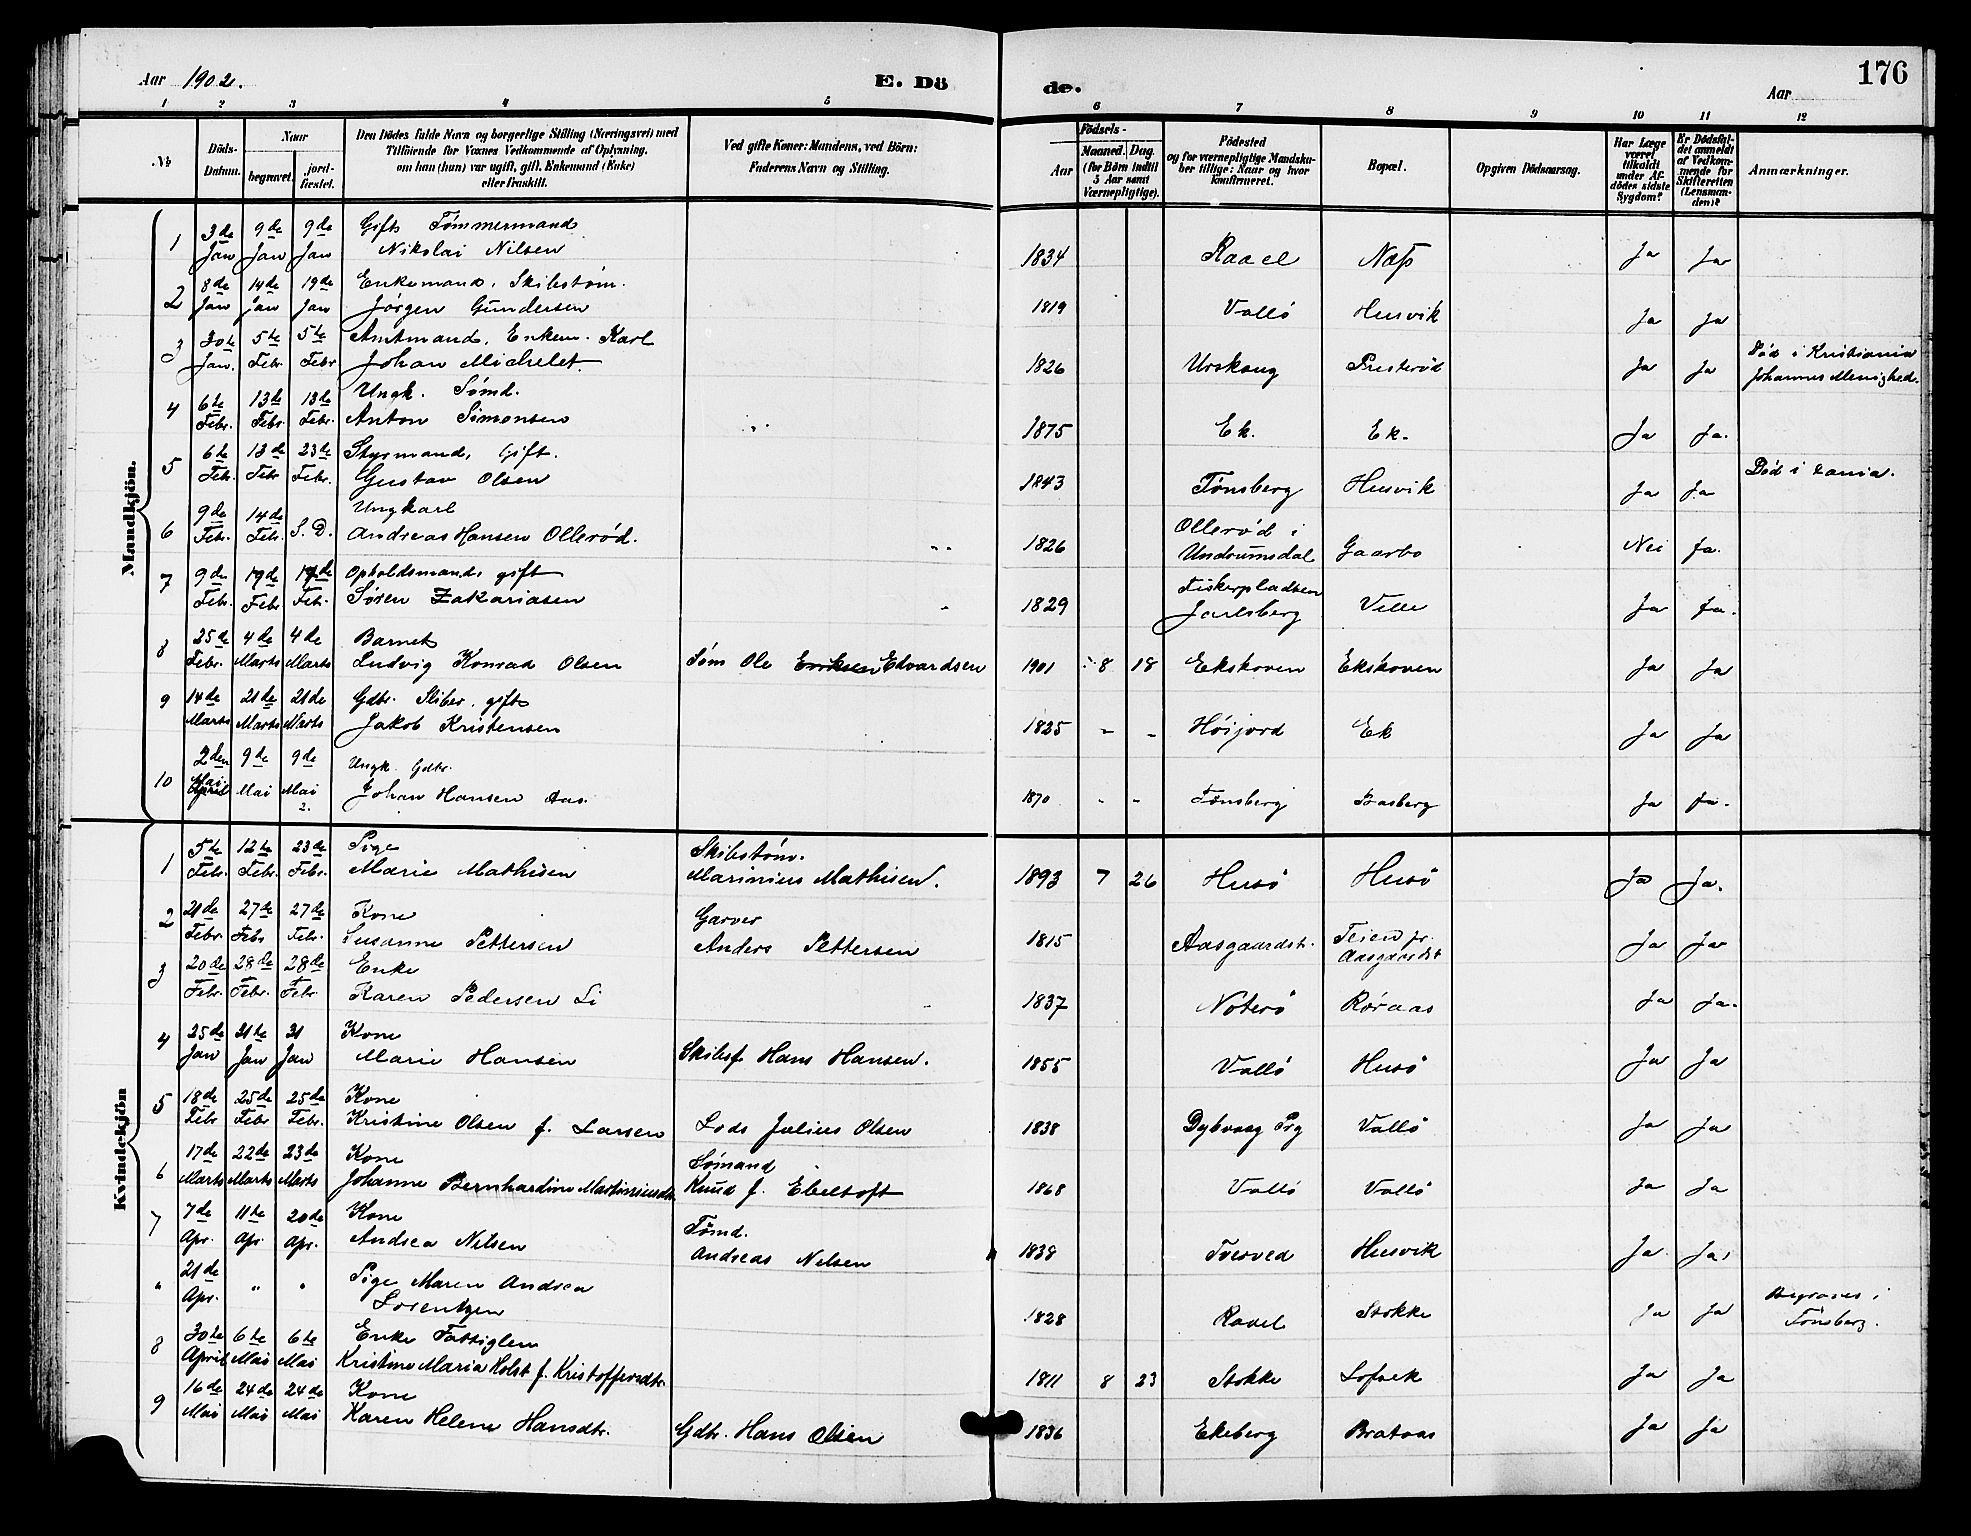 176
Aar 1902.
E. Dö de.
Aar
1 2 3 4 5 6 7 8 9 10 11 12
No
Döds-Datum.
Naar
begravet.
jord-fæstet.
Den Dödes fulde Navn og borgerlige Stilling (Næringsvei) med
Tilföiende for Voxnes Vedkommende af Oplysning,
om han (hun) var ugift, gift, Enkemand (Enke)
eller fraskilt.
Ved gifte Koner: Mandens, ved Börn:
Faderens Navn og Stilling.
Födsels-
Aar
Maaned. Dag.
(for Börn indtil
5 Aar samt
Værnepligtige).
Födested
og for værnepligtige Mandska-
ber tillige: Naar og hvor
konfirmeret.
Bopæl.
Opgiven Dödsaarsag.
Har Læge
været
tilkaldt
under Af-
dödes sidste
Sygdom?
Er Dödsfal-
det anmeldt
af Vedkom-
mende for
Skifteretten
(Lensman-
den)?
Anmærkninger.
Mandkjön.
1 3de Jan 9de Jan 9de Jan Gift Tømmermand
Nikolai Nilsen 1834 Raael Næs Ja Ja
2 8de Jan 14de Jan 19de Jan Enkemand, Skibstøm.
Jørgen Gundersen 1819 Vallö Husvik Ja Ja
3 30te Jan. 5te Febr 5te Febr Amtmand, Enkem. Karl
Johan Michelet. 1826 Urskoug Presterød Ja Ja Død i Kristiania
Johannes Menighed.
4 6te Febr. 13de Febr. 13de Febr. Ungk. Sømd.
Anton Simonsen 1875 Ek. Ek. Ja Ja.
5 6te Febr. 13de Febr 23de Febr. Styrmand, Gift.
Gustav Olsen 1843 Tønsberg Husvik Ja Ja Død i
6 9de Febr. 14de Febr. S. D. Ungkarl
Andreas Hansen Ollerød. 1826 Ollerød i
Undrumsdal Gaarbo Nei Ja.
7 9de Febr. 19de Febr 19de Febr. Opholdsmand, gift
Søren Zakariasen 1829 Fiskerpladsen
Jarlsberg Velle Ja Ja.
8 25de Febr. 4de Marts 4de Marts Barnet
Ludvig Konrad Olsen Søm Ole Edvardsen 1901 8 18 Ekskoven Ekskoven Ja Ja
9 14de Marts 21de Marts 21de Marts Gdbr. Sliber, gift
Jakob Kristensen 1825 - - Høijord Ek Ja Ja
10 2den Mai April 9de Mai 9de Mai Ungk. Gdbr.
Johan Hansen Aas. 1870 - - Tønsberg Basberg Ja Ja.
Kvindekjön
1 5te Febr. 12te Febr. 23de Febr. Pige
Marie Mathisen Skibstøm.
Marinius Mathisen. 1893 7 26 Husö Husö Ja Ja.
2 21de Febr. 27de Febr 27de Febr. Kone
Susanne Pettersen Garver
Anders Pettersen 1815 Aasgaardstr. Teien pr.
Aasgaardstr Ja Ja
3 20de Febr. 28de Febr. 28de Febr. Enke
Karen Pedersen Li 1837 Nøterø Røraas Ja Ja.
4 25de Jan 31te Jan 31 Jan Kone
Marie Hansen Skibsf. Hans Hansen. 1855 Vallö Husö Ja Ja
5 18de Febr 25de Febr 25de Febr. Kone
Kristine Olsen f. Larsen Lods Julius Olsen 1838 Dybvaag Prg Vallö Ja Ja
6 17de Marts 22de Marts 23de Marts Kone
Johanne Bernhardine Martiniusdtr Sømand
Knud f. Ebeltoft 1868 Vallö Vallö Ja Ja
7 7de Apr. 11te Apr. 20de Apr. Kone
Andrea Nilsen Tømd.
Andreas Nelsen 1838 Tvesved Husvik Ja Ja.
" 21de Apr. " " Pige Maren Andrea
Lorentzen 1828 Raael Stokke Ja Ja Begraves i
Tønsberg.
8 30te April 6te Mai 6te Mai Enke Fattiglem
Kristine Maria Holst f. Kristoffersdtr. 1811 8 23 Stokke Lofvek Ja Ja
9 16de Mai 24de Mai 24de Mai Kone
Karen Helene Hansdtr. Gdbr. Hans Olsen 1836 Ekeberg Brataas Ja Ja